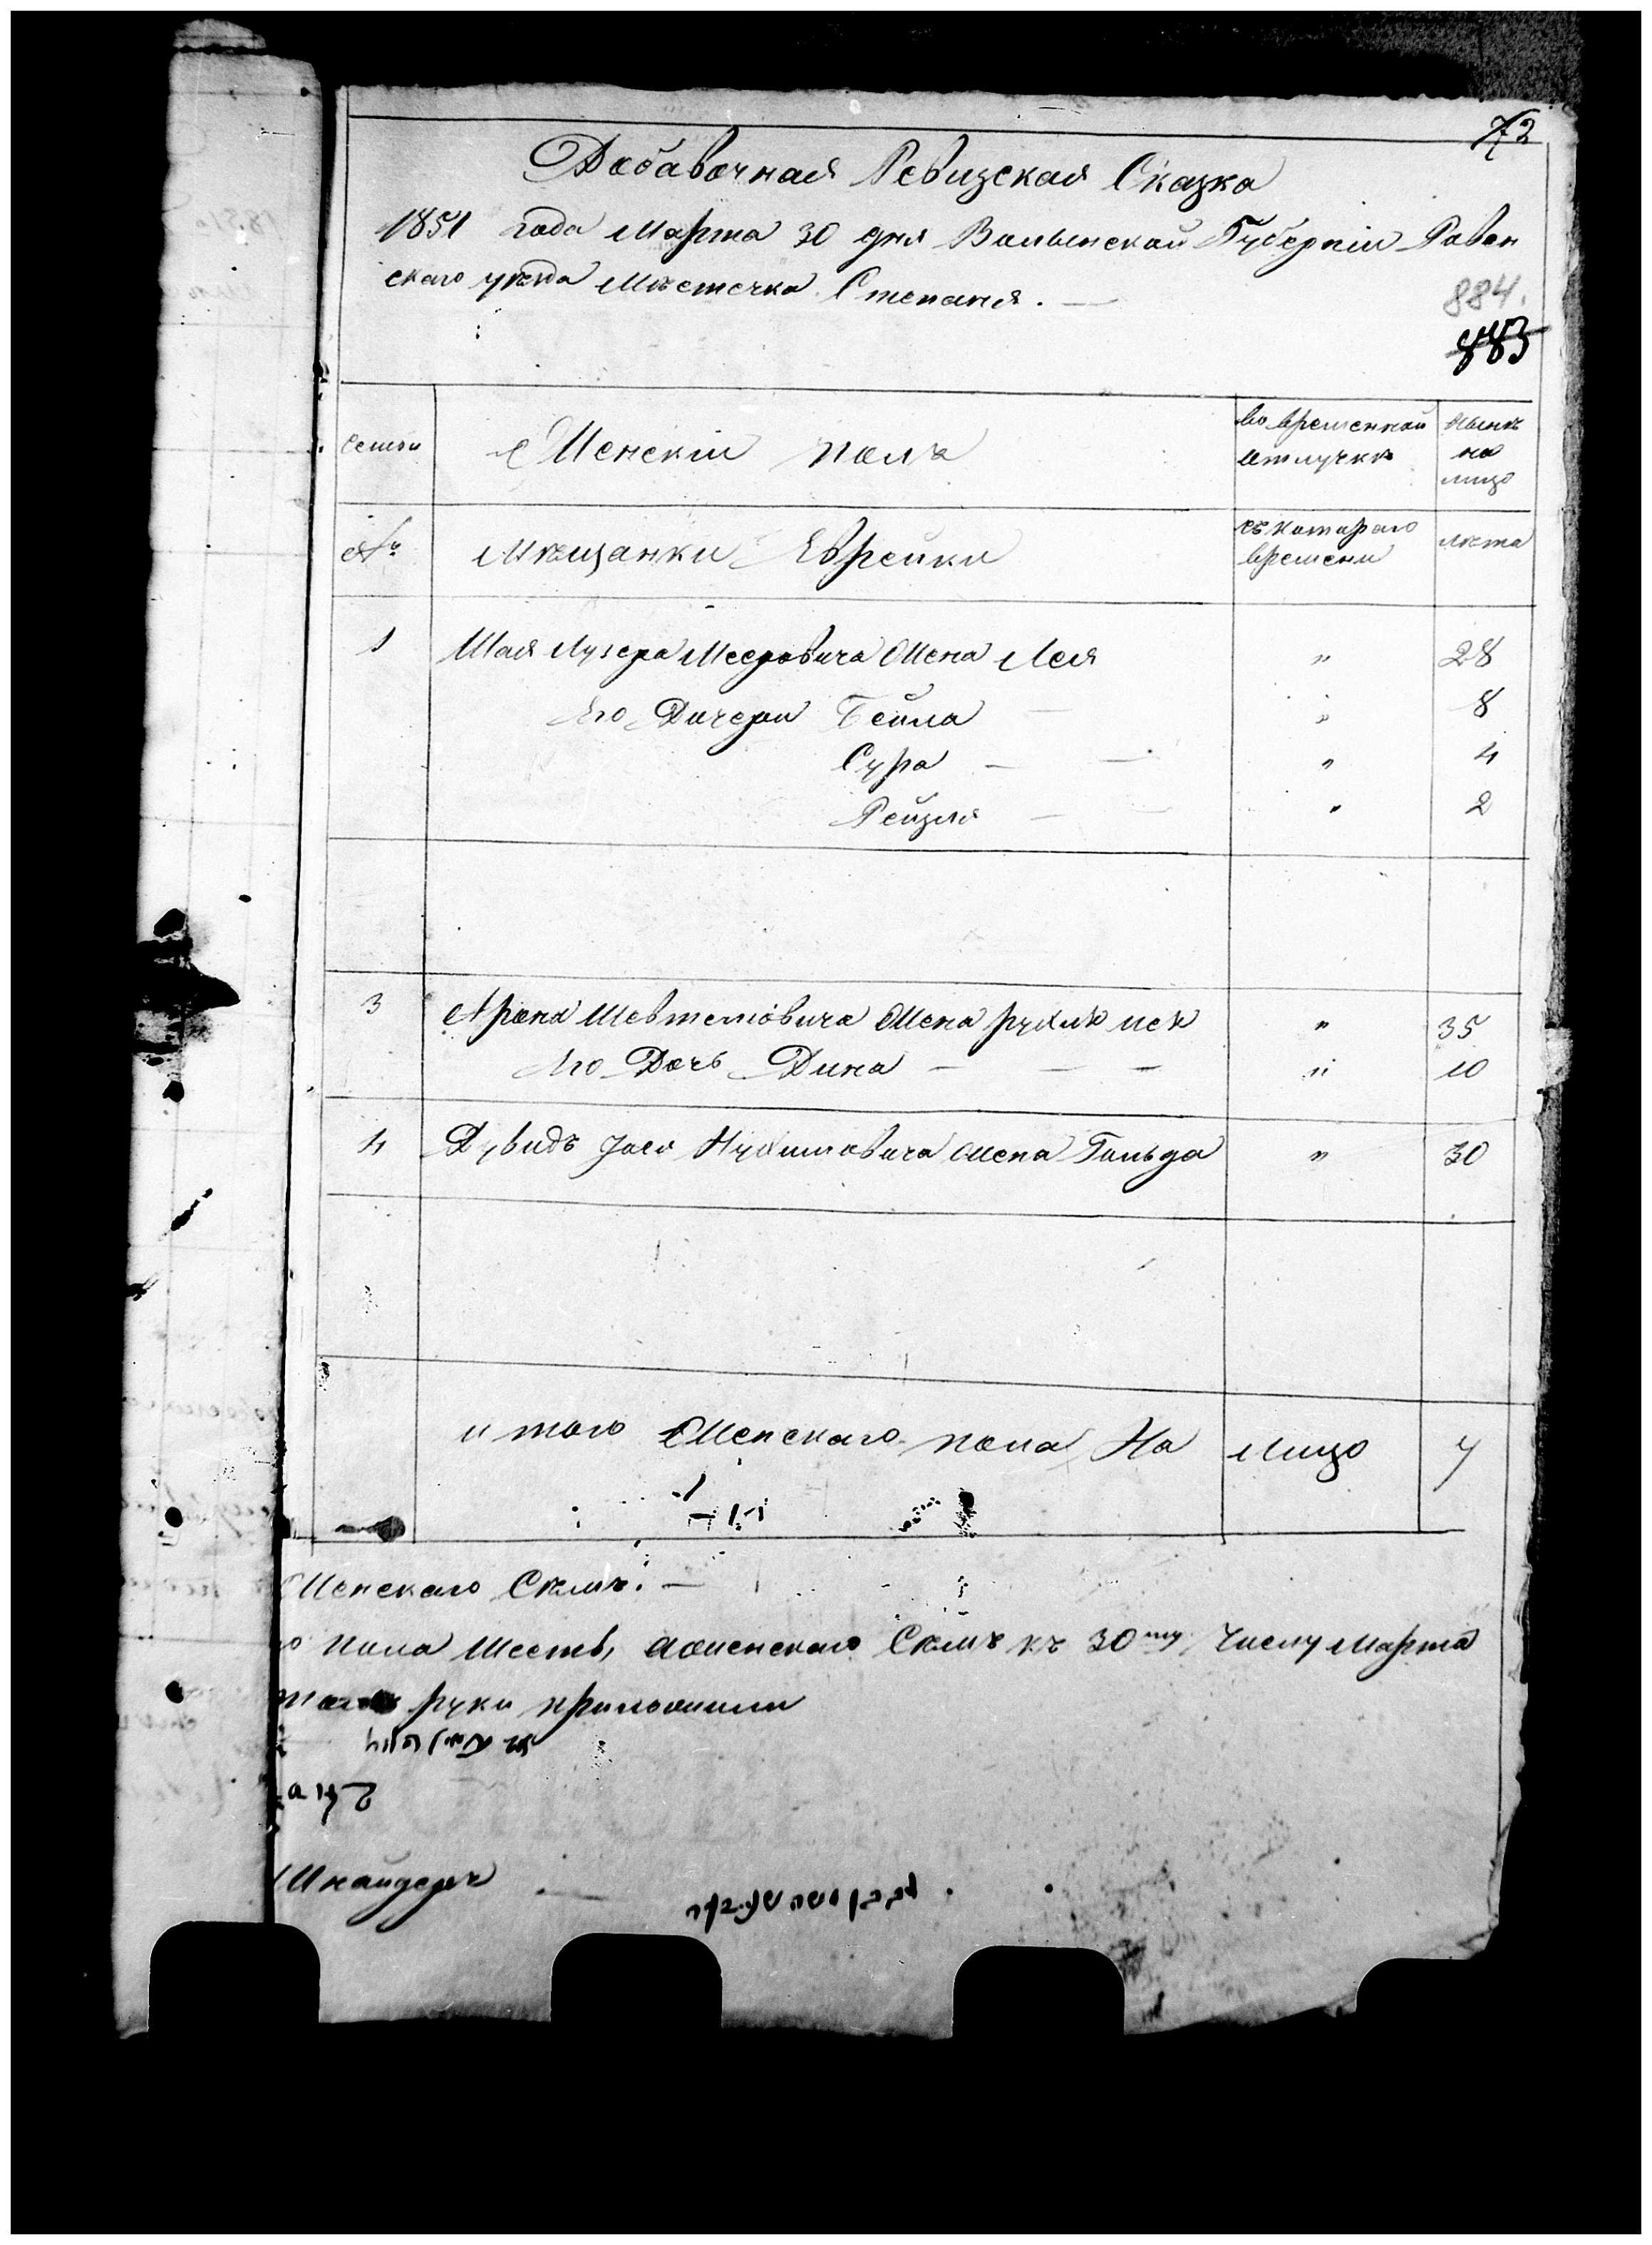 72
Добавочная Ревизская Сказка
1851 года Марта 30 дня Волынской Губерніи Ровен
скаго уѣзда Мѣстечка Степаня. —
884.
883
Семьи
Женскій полъ
во временной отлучкѣ
Нынѣ на лицо
№
Мѣщанки Еврейки
съ котораго времени
лѣта
1 Шая Лузера Мееровича Жена Лея " 28
Его Дочери Бейла — " 8
Сура — — " 4
Рейзля — — " 2
3 Арона Жена " 35
Его Дочь Дина — — — " 10
4 Дувидъ Жена Гольда " 30
и того Женскаго пола На лицо 7
Женскаго Семь. —
о пола Шесть, а женскаго Семь къ 30му числу Марта
руки приложили